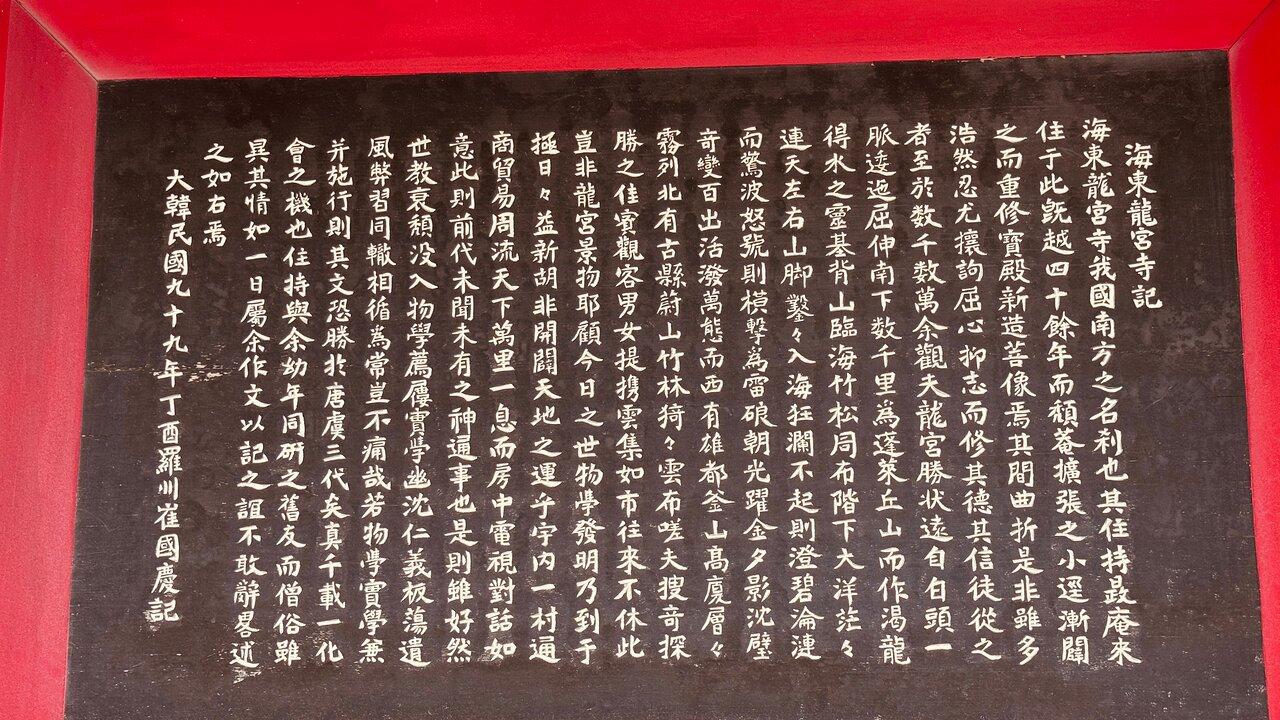 海東龍宮寺記
海東龍宮寺我國南方之名刹也其住持晸庵來
住于此旣越四十餘年而頹菴擴張之小逕漸闢
之而重修寶殿新造菩像焉其間曲折是非雖多
浩然忍尤攘詬屈心抑志而修其德其信徒從之
者至於数千数萬余觀夫龍宮勝状遠自白頭一
脈逶迤屈伸南下数千里為蓬萊丘山而作渴龍
得水之靈基背山臨海竹松周布階下大洋茫々
連天左右山脚鑿々入海狂瀾不起則澄碧淪漣
而驚波怒號則橫擊為雷硠朝光躍金夕影沈璧
奇變百出活潑萬態而西有雄都釜山高廈層々
霧列北有古縣蔚山竹林猗々雲布嗟夫搜奇探
勝之佳賓觀客男女提携雲集如市往來不休此
豈非龍宮景物耶顧今日之世物學發明乃到于
極日々益新胡非開闢天地之運乎宇内一村通
商貿易周流天下萬里一息而房中電視對話如
意此則前代未聞未有之神通事也是則雖好然
世教衰頹没入物學薦履實學幽沈仁義板蕩遺
風弊習同轍相循為常豈不痛哉若物學實學兼
并施行則其文恐勝於唐虞三代矣真千載一化
會之機也住持與余幼年同硏之舊友而僧俗雖
異其情如一日屬余作文以記之誼不敢辭畧述
之如右焉
大韓民國九十九年丁酉羅州崔國慶記